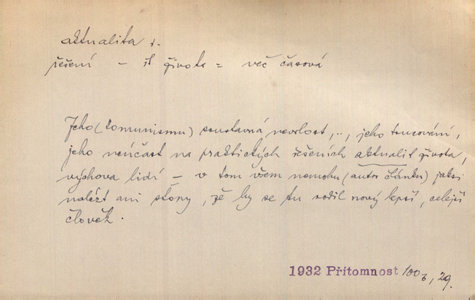 aktualita f.
řešení – života = věc časová
Jeho (komunismu) soustavná nevrlost, .., jeho trucování,
jeho neúčast na praktických řešeních aktualit života,
výchova lidí – v tom všem nemohu (autor článku) jaksi
nalézt ani stopy, že by se tu rodil nový lepší, celejší
člověk.
1932 Přítomnost 29.